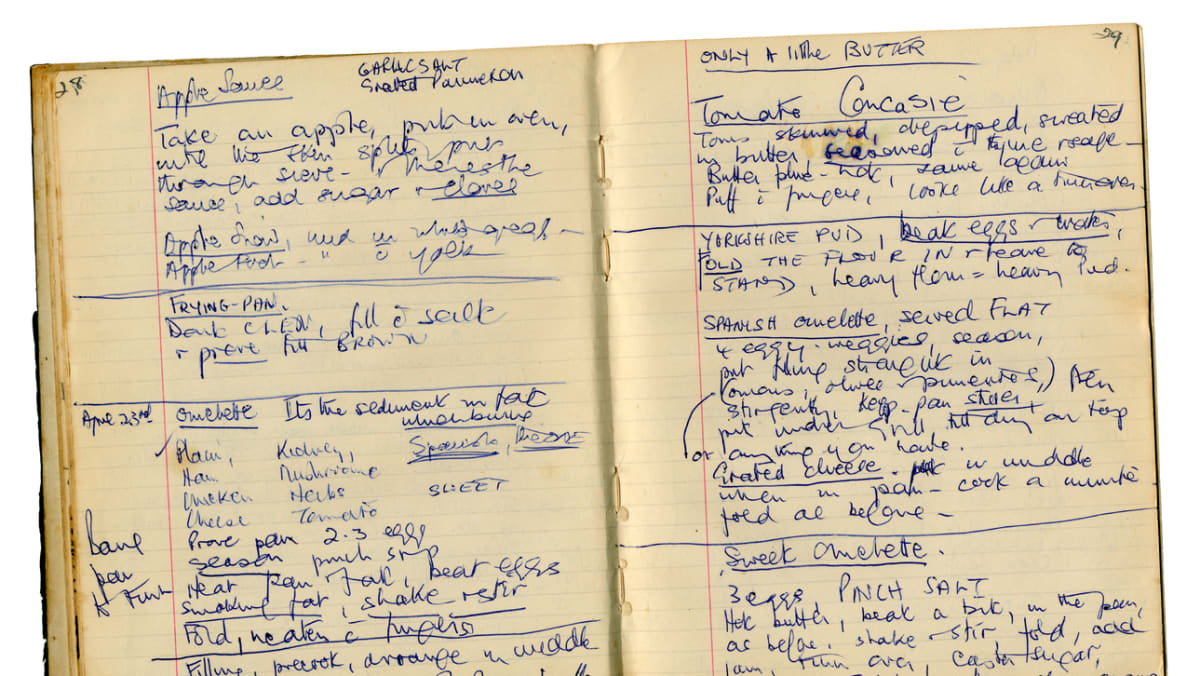 28
GARLIC SALT
Grated Parmeson
Apple Sauce
Take an apple, put in oven,
until the skin splits, puts
through sieve - & theres the
sauce, add sugar & cloves
Apple Snow, and in whites
Apple - " c̄ yolk
FRYING-PAN.
CLEAN, fill c̄ salt
& prove till BROWN
23rd omelette Its the sediment in fat
when burning
Plain, Kidney, Spanish,
Ham Mushrooms
Chicken Herbs SWEET
Cheese Tomato
Prove pan 2.3 eggs
season pinch
Heat pan fat, beat eggs
Smoking fat, shake & stir
Fold, neaten c̄
Filling, precook, arrange in middle
pan
29
ONLY A little BUTTER
Tomato Concasse
Toms skinned, depipped, sweated
in butter, seasoned c̄
Butter, same again
Puff c̄, looks like a turnover.
YORKSHIRE PUD, beat eggs & water,
FOLD THE FLOUR IN & leave to
STAND, heavy = heavy Pud.
SPANISH omelette, served FLAT
4 eggs - veggies, season,
put filling straight in
(Tomatoes, olives & pimentoes,) then
stir gently, keep pan
put under grill till dry on top
or (anything you have.
Grated cheese. in middle
when in pan - cook a minute
fold as before -
Sweet Omelette.
3 eggs, PINCH SALT
Hot butter, beat a bit, in the pan,
as before, shake & stir, fold, add
jam, turn over, castor sugar,